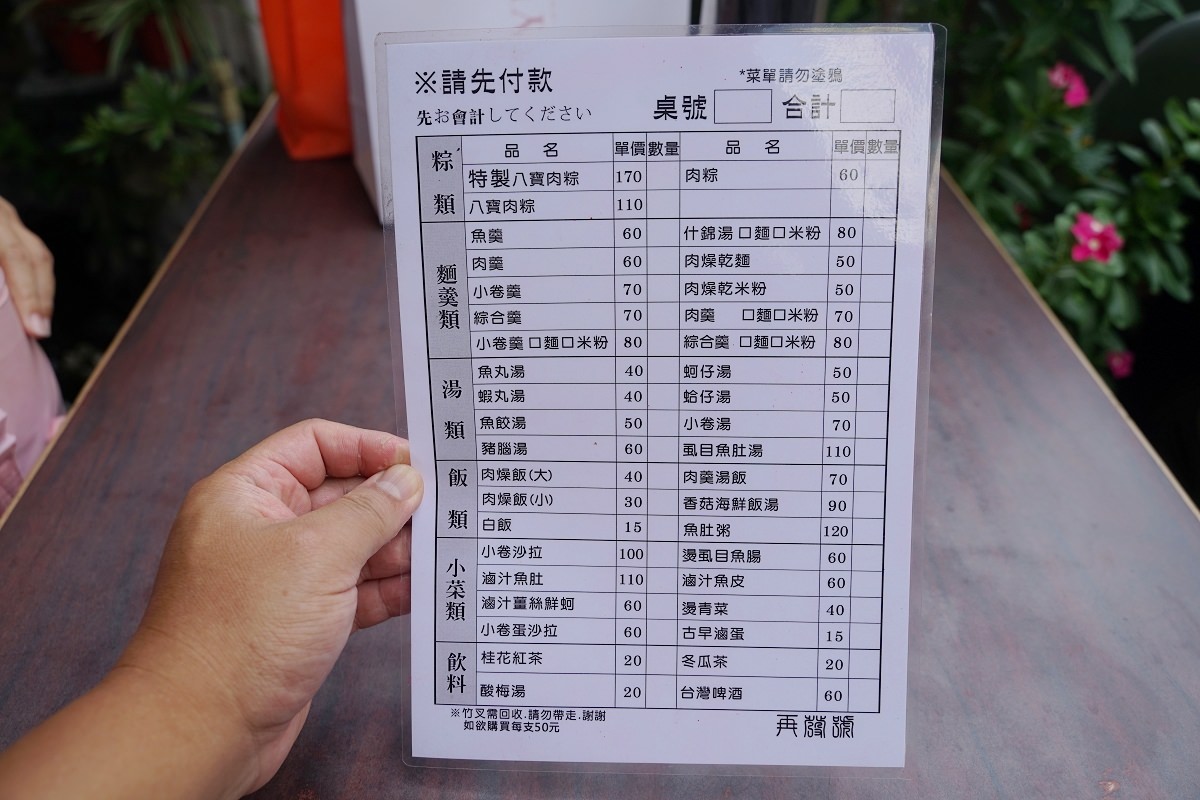 ※請先付款
*菜單請勿塗鴉
先お會計してください
桌號 合計
粽類
品 名 單價 數量 品 名 單價 數量
特製八寶肉粽 170 肉粽 60
八寶肉粽 110
麵羹類
魚羹 60 什錦湯 口麵口米粉 80
肉羹 60 肉燥乾麵 50
小卷羹 70 肉燥乾米粉 50
綜合羹 70 肉羹 口麵口米粉 70
小卷羹 口麵口米粉 80 綜合羹 口麵口米粉 80
湯類
魚丸湯 40 蚵仔湯 50
蝦丸湯 40 蛤仔湯 50
魚餃湯 50 小卷湯 70
豬腦湯 60 虱目魚肚湯 110
飯類
肉燥飯(大) 40 肉羹湯飯 70
肉燥飯(小) 30 香菇海鮮飯湯 90
白飯 15 魚肚粥 120
小菜類
小卷沙拉 100 燙虱目魚腸 60
滷汁魚肚 110 滷汁魚皮 60
滷汁薑絲鮮蚵 60 燙青菜 40
小卷蛋沙拉 60 古早滷蛋 15
飲料
桂花紅茶 20 冬瓜茶 20
酸梅湯 20 台灣啤酒 60
※竹叉需回收.請勿帶走.謝謝
如欲購買每支50元
再發號